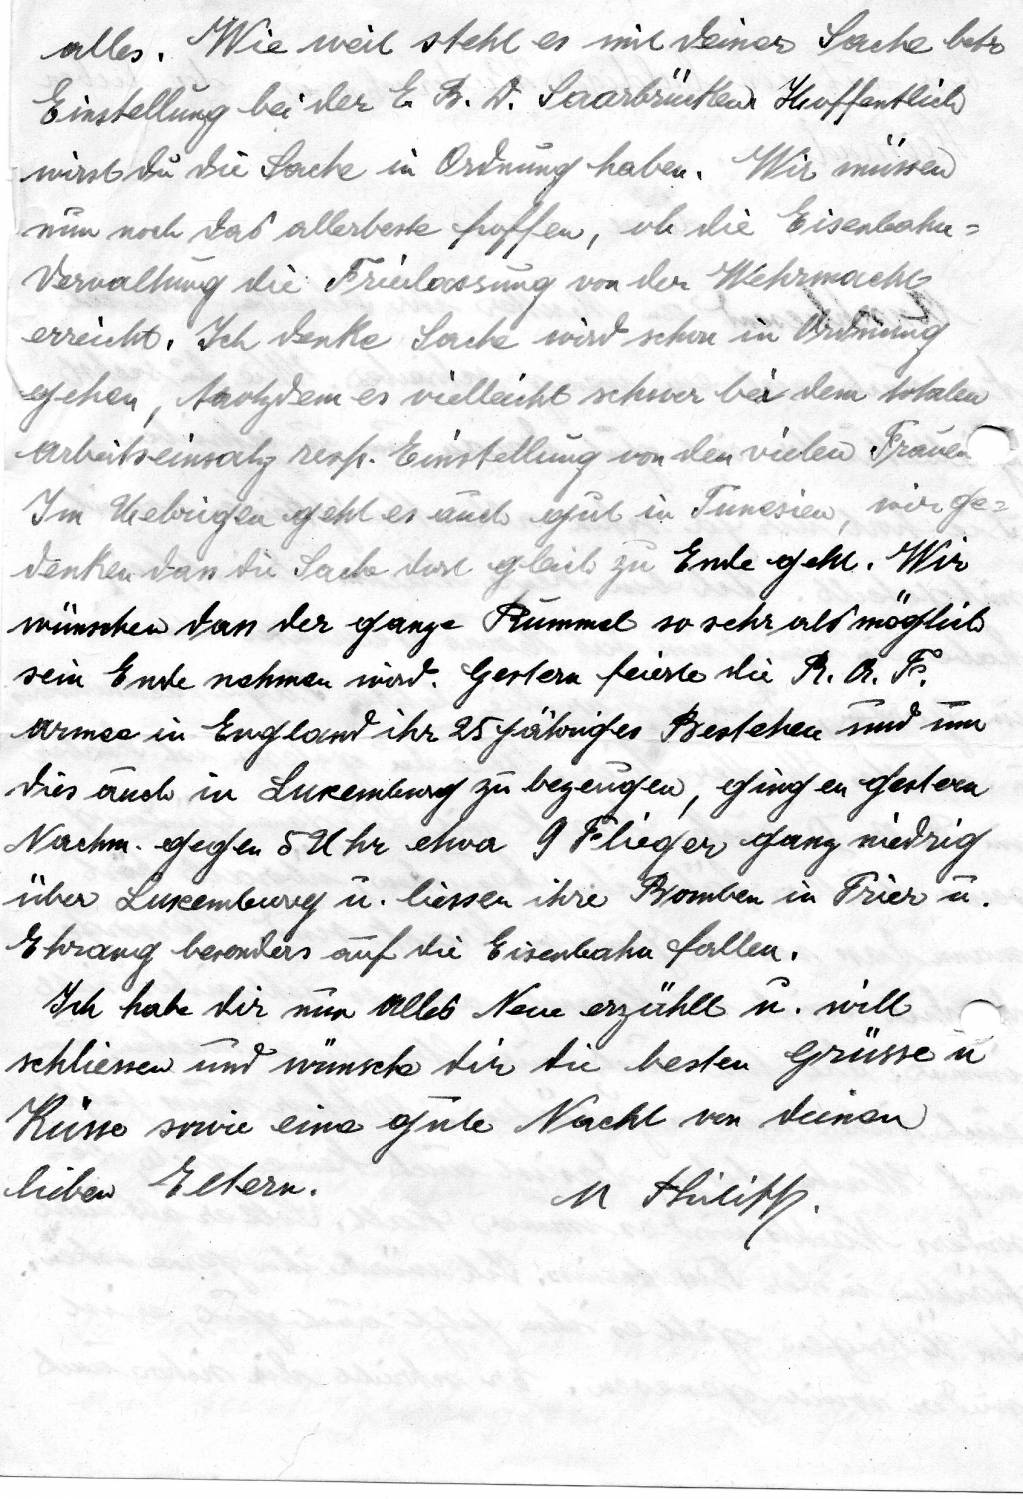 alles. Wie weit steht es mit deiner Sache betr
Einstellung bei der E. B. D. Saarbrücken Hoffentlich
wirst du die Sache in Ordnung haben. Wir müssen
nun noch das allerbeste hoffen, ob die Eisenbahn=
Verwaltung die Freilassung von der Wehrmacht
erreicht. Ich denke Sache wird schon in Ordnung
gehen, trotzdem es vielleicht schwer bei dem totalen
Arbeitseinsatz resp. Einstellung von den vielen Frauen
Im Uebrigen geht es auch gut in Tunesien, wir ge=
denken dass die Sache dort gleich zu Ende geht. Wir
wünschen dass der ganze Rummel so sehr als möglich
sein Ende nehmen wird. Gestern feierte die R. A. F.
Armee in England ihr 25 jähriges Bestehen und um
dies auch in Luxemburg zu bezeugen, gingen gestern
Nachm. gegen 5 Uhr etwa 9 Flieger ganz niedrig
über Luxemburg u. liessen ihre Bomben in Trier u.
Ehrang besonders auf die Eisenbahn fallen.
Ich habe dir nun alles Neue erzählt u. will
schliessen und wünsche dir die besten Grüsse u
Küsse sowie eine gute Nacht von deinen
lieben Eltern. M Philipp.